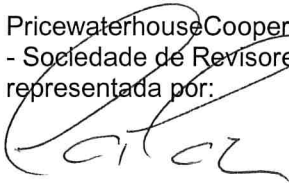 PricewaterhouseCooper
- Sociedade de Revisore
representada por: